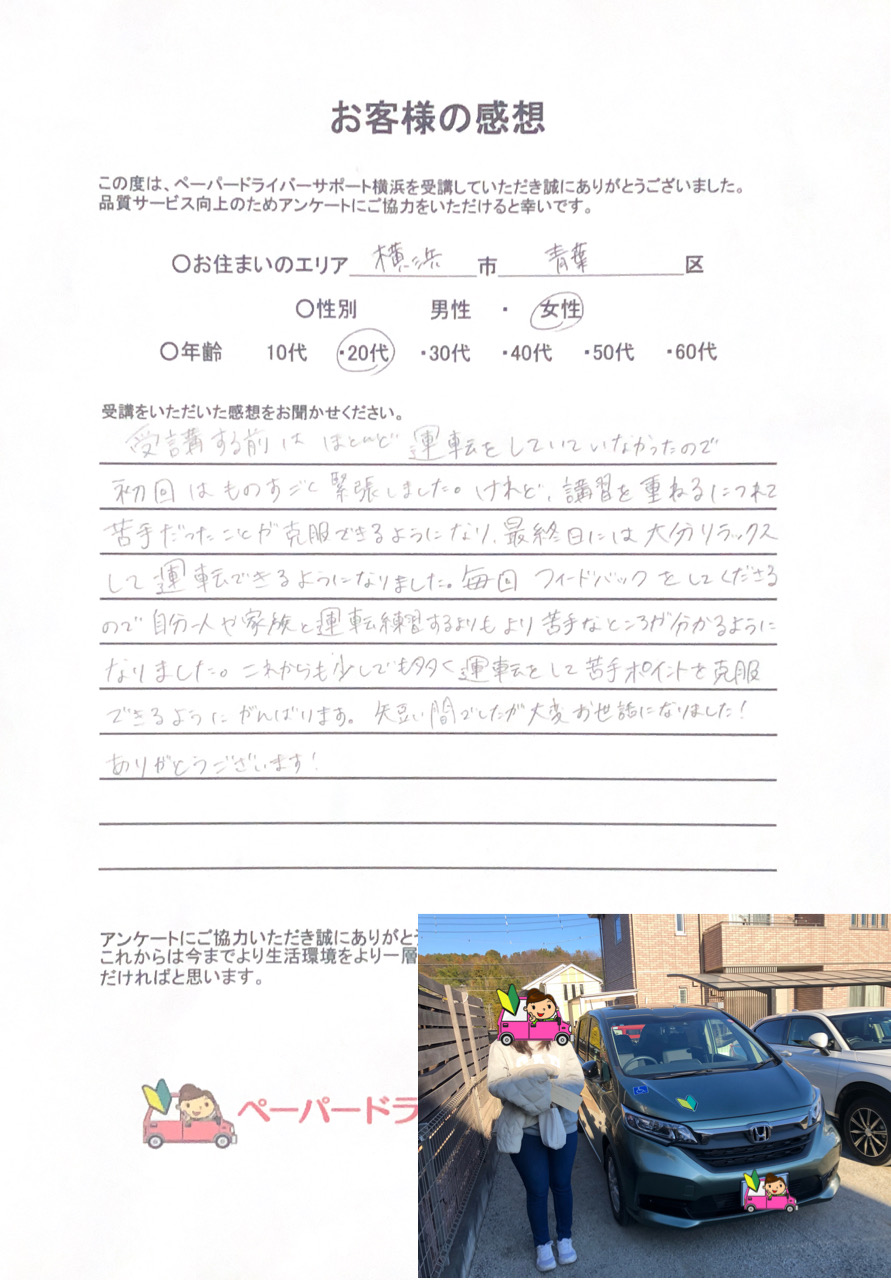 お客様の感想
この度は、ペーパードライバーサポート横浜を受講していただき誠にありがとうございました。
品質サービス向上のためアンケートにご協力をいただけると幸いです。
〇お住まいのエリア 横浜 市 青葉 区
〇性別 男性 ・ 女性
〇年齢 10代 ・20代 ・30代 ・40代 ・50代 ・60代
受講をいただいた感想をお聞かせください。
受講する前は ほとんど 運転をしていていなかったので
初回はものすごく緊張しました。けれど、講習を重ねるにつれて
苦手だったことが克服できるようになり、最終日には大分リラックス
して運転できるようになりました。毎回フィードバックをしてくださる
ので自分一人や家族と運転練習するよりもより苦手なところが分かるように
なりました。これからも少しでも多く運転をして苦手ポイントを克服
できるようにがんばります。短い間でしたが大変お世話になりました!
ありがとうございます!
アンケートにご協力いただき誠にありがと
これからは今までより生活環境をより一層
だければと思います。
ペーパードラ